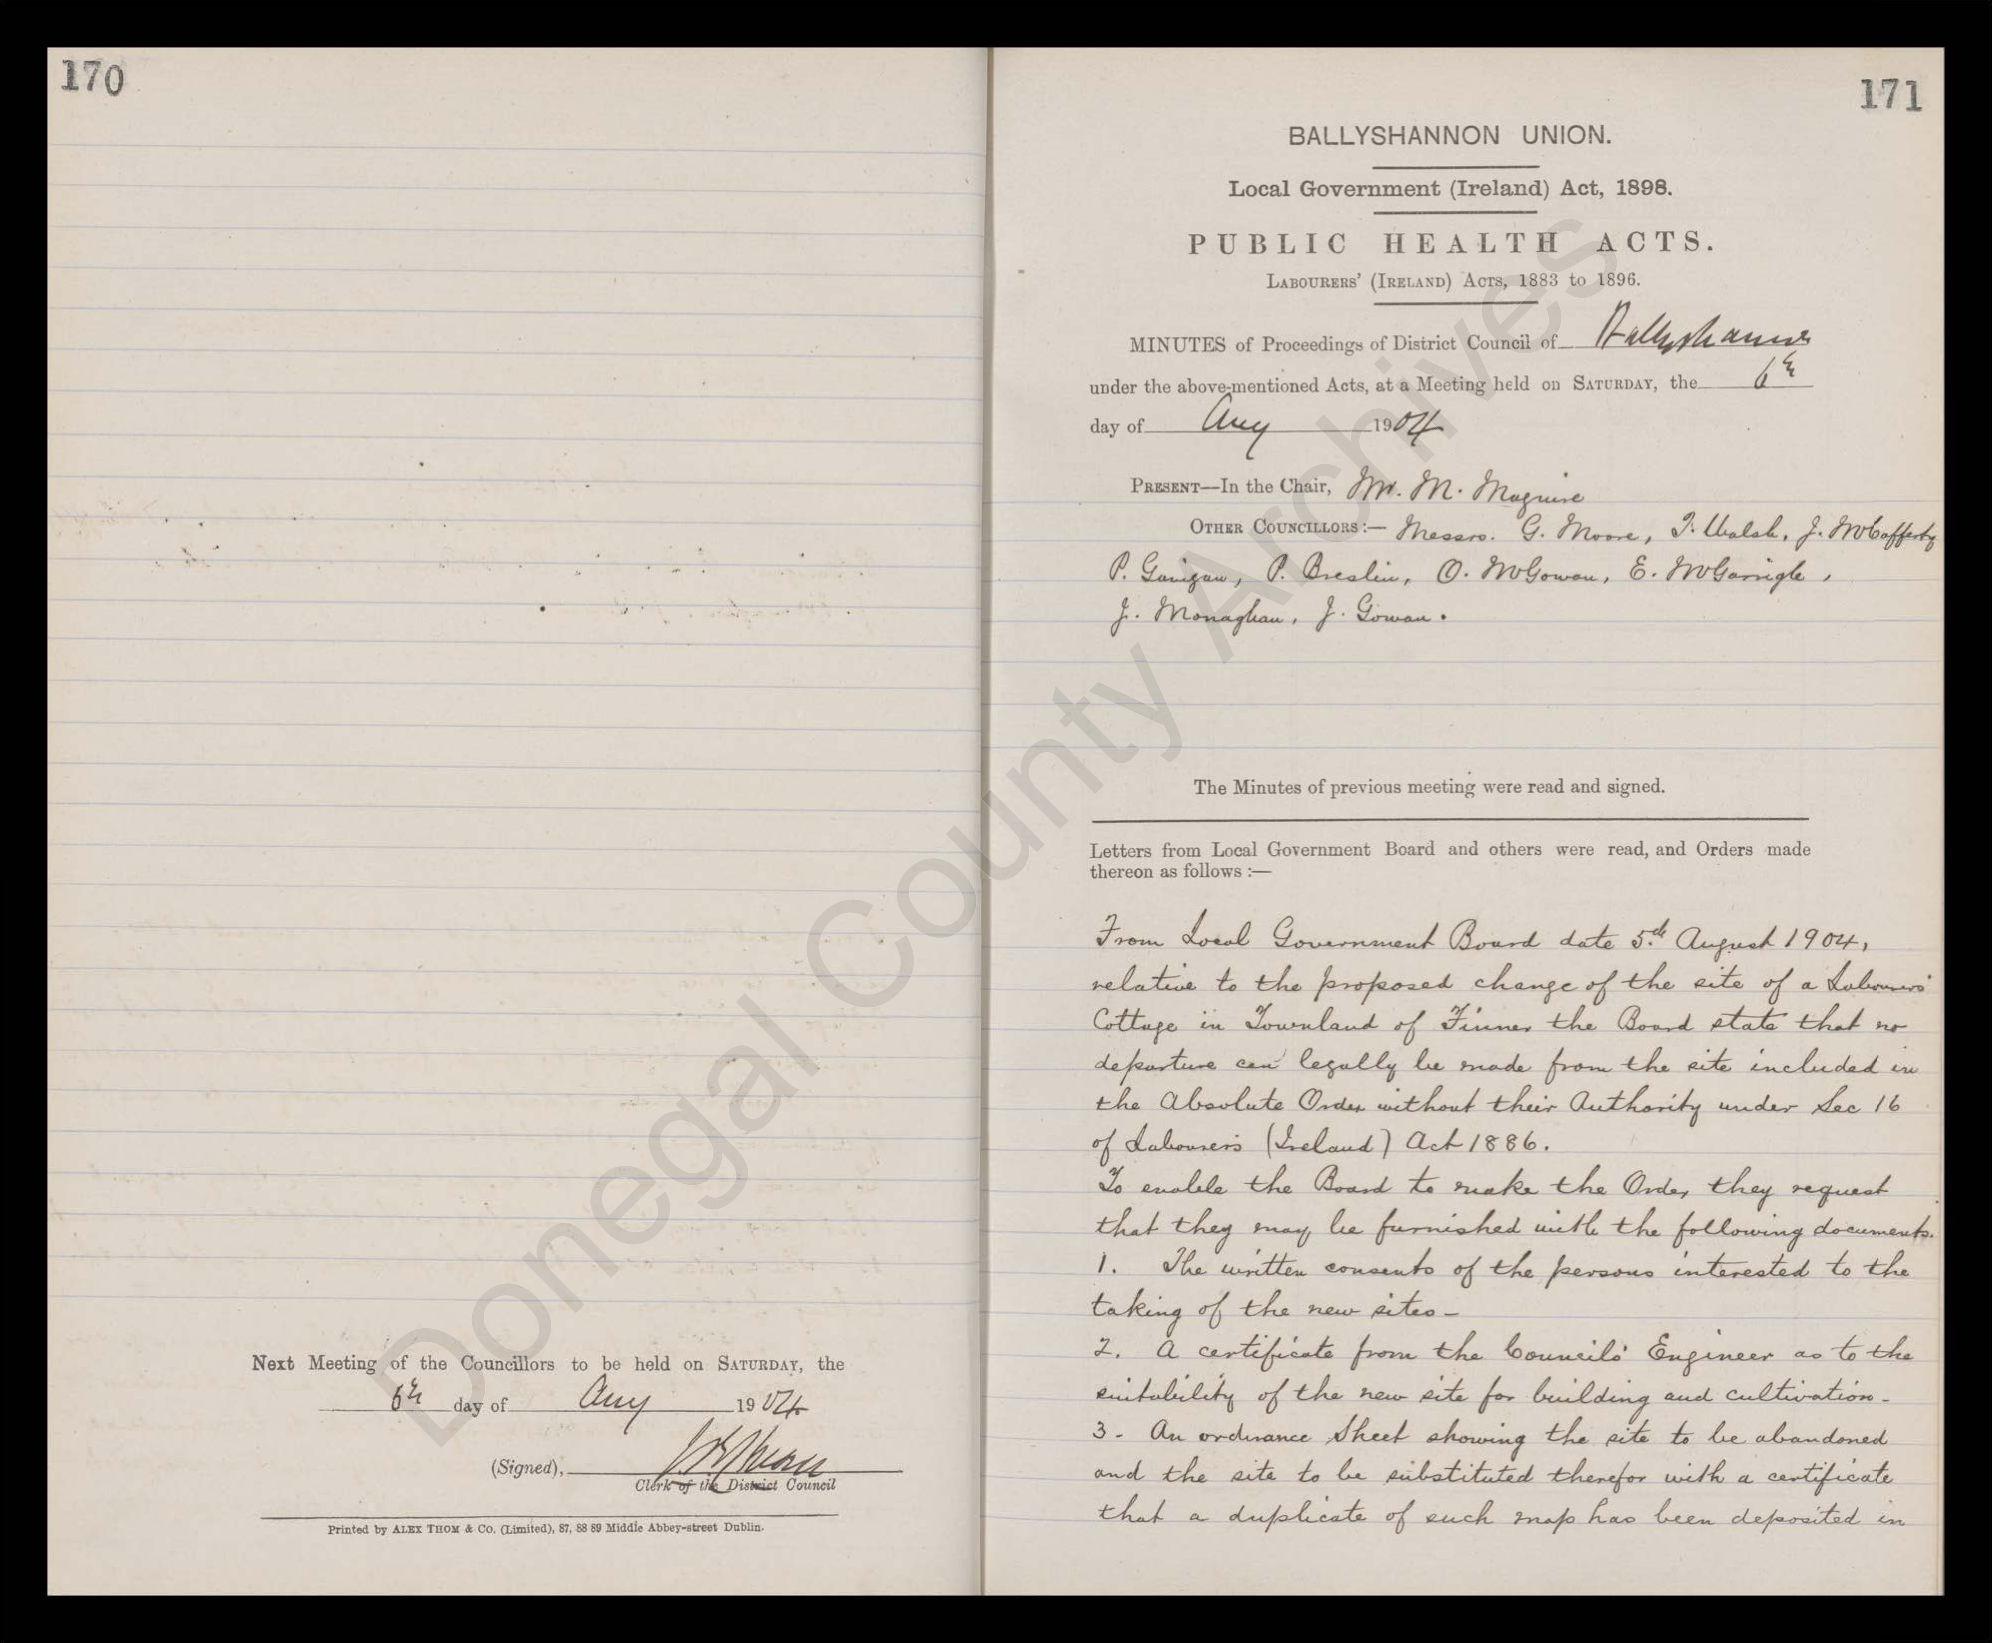 170
Next Meeting of the Councillors to be held on SATURDAY, the
6th day of Aug 1904
(Signed),
Clerk of the District Council
Printed by ALEX THOM & Co. (Limited), 87, 88 89 Middle Abbey-street Dublin.
171
BALLYSHANNON UNION.
Local Government (Ireland) Act, 1898.
PUBLIC HEALTH ACTS.
LABOURERS' (IRELAND) ACTS, 1883 to 1896.
MINUTES of Proceedings of District Council of Ballyshannon
under the above-mentioned Acts, at a Meeting held on SATURDAY, the 6th
day of Aug 1904
PRESENT—In the Chair, Mr. M. Maguire
OTHER COUNCILLORS:— Messrs. G. Moore, T. Walsh, J. McCafferty
P. Garigan, P. Breslin, O. McGowan, E. McGarrigle,
J. Monaghan, J. Gowan.
The Minutes of previous meeting were read and signed.
Letters from Local Government Board and others were read, and Orders made
thereon as follows :—
From Local Government Board date 5th August 1904,
relative to the proposed change of the site of a Labourers'
Cottage in Townland of Finner the Board state that no
departure can legally be made from the site included in
the Absolute Order without their Authority under Sec 16
of Labourers (Ireland) Act 1886.
To enable the Board to make the Order they request
that they may be furnished with the following documents.
1. The written consents of the persons interested to the
taking of the new sites -
2. A certificate from the Councils' Engineer as to the
suitability of the new site for building and cultivation -
3 - An ordinance Sheet showing the site to be abandoned
and the site to be substituted therefor with a certificate
that a duplicate of such map has been deposited in
Donegal County Archives